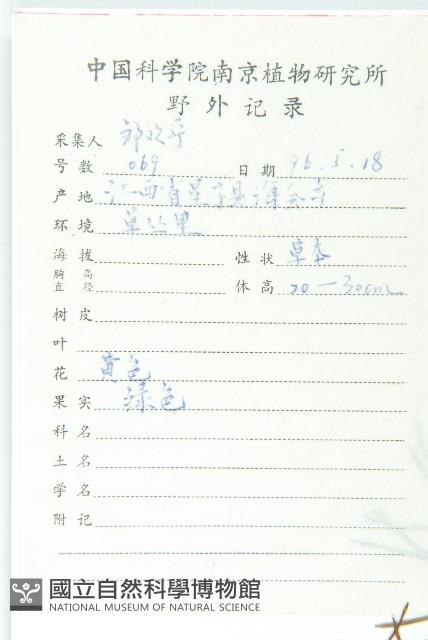 中国科学院南京植物研究所
野外记录
采集人
号数 069 日期 96. 5. 18
产地 江西省星子县海会寺
环境 草丛里
海拔 性状 草本
胸高直径 体高 20—30cm
树皮
叶
花 黄色
果实 绿色
科名
土名
学名
附记
國立自然科學博物館
NATIONAL MUSEUM OF NATURAL SCIENCE